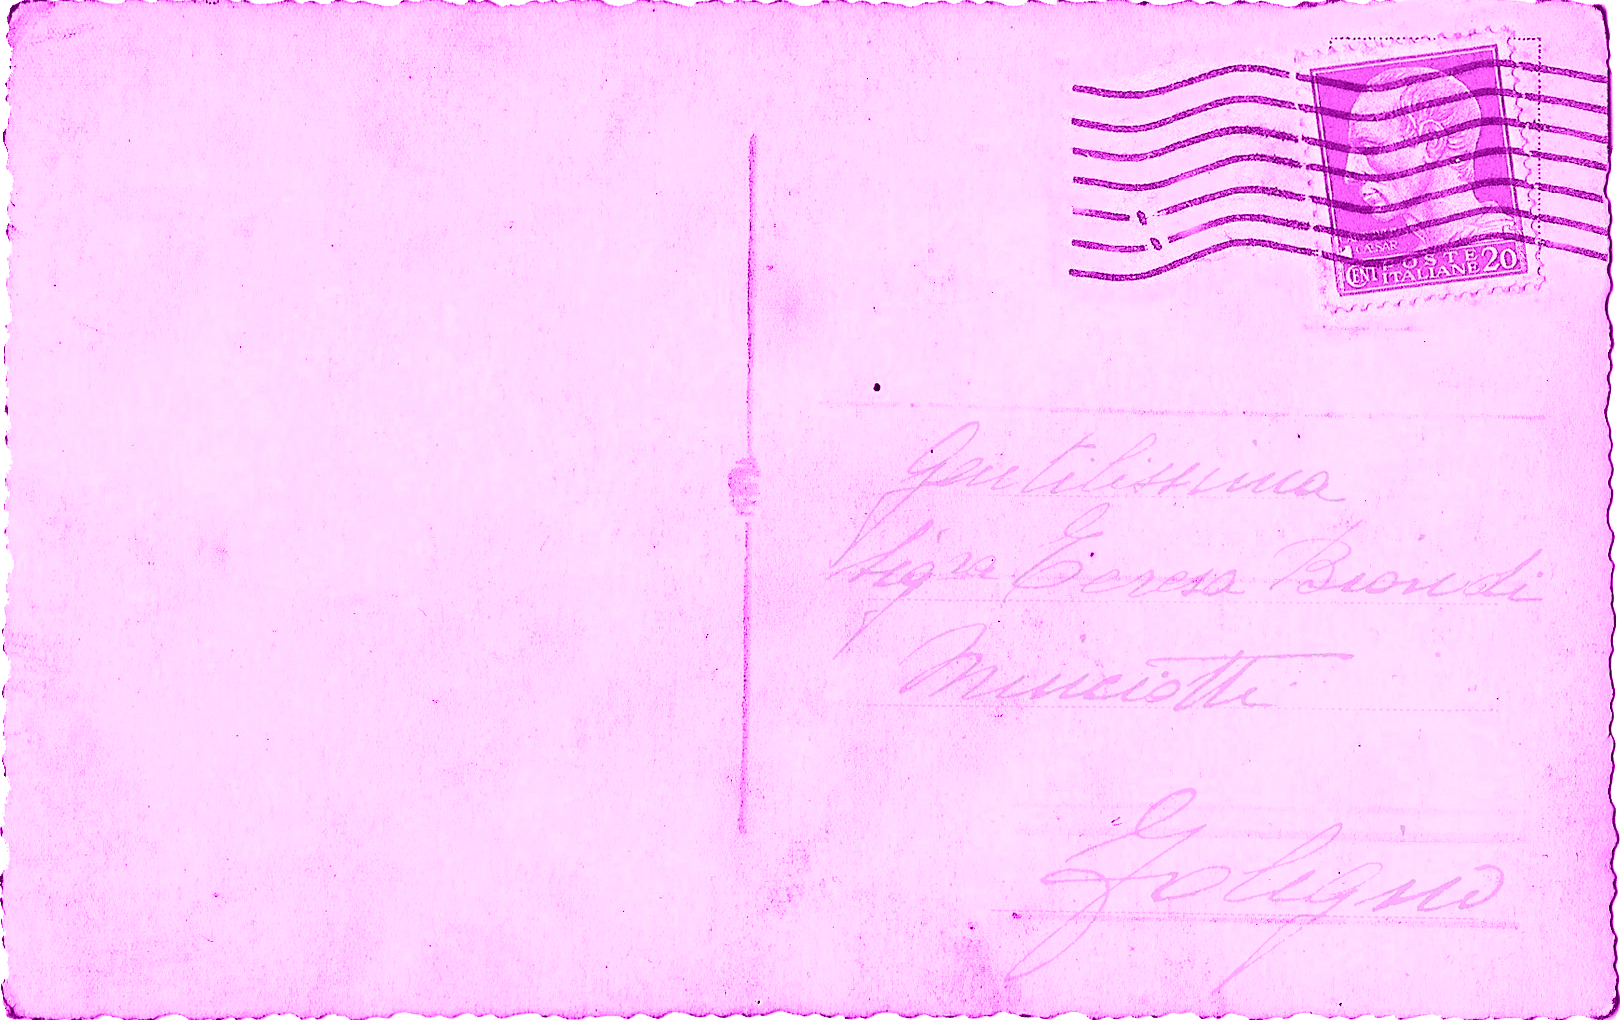 CAESAR
POSTE
CENT ITALIANE 20
Gentilissima
Sigra Teresa Biondi
Minciotti
Foligno